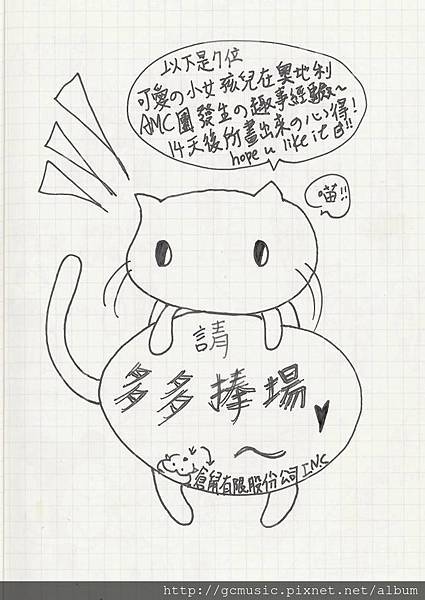 以下是7位
可愛の小女孩兒在奧地利
AMC團發生の趣事經驗~
14天後所畫出来の心得!
hope u like it 日!!
喵!!
請
多多捧場
~
倉鼠有限股份公司 INC
http://gcmusic.pixnet.net/album